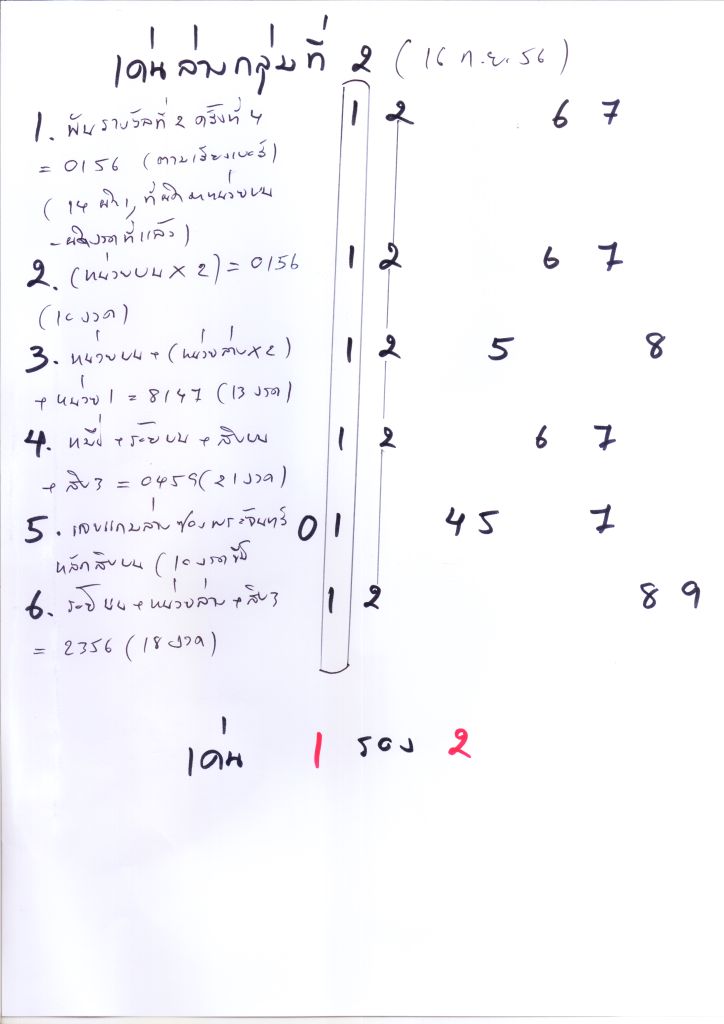 เด่นล่างกลุ่มที่ 2 (16 ก.ย. 56)
1. พันรางวัลที่ 2 ครั้งที่ 4 1 2 6 7
= 0156 (ตามเรียงเบอร์)
(14 ผิด1, ที่ผิดมาหน่วยบน
ผิดงวดที่แล้ว)
2. (หน่วยบน x 2) = 0156 1 2 6 7
(10 งวด)
3. หน่วยบน + (หน่วยล่าง x 2) 1 2 5 8
+ หน่วย 1 = 8147 (13 งวด)
4. หมื่น + ร้อยบน + สิบบน 1 2 6 7
+ สิบ 3 = 0459 (21 งวด)
5. เลขแถมล่างซองพระจันทร์ 0 1 4 5 7
หลักสิบบน (10 งวด
6. ร้อยบน + หน่วยล่าง + สิบ 3 1 2 8 9
= 2356 (18 งวด)
เด่น 1 รอง 2